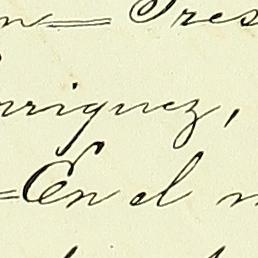 n= Tres
nriquez,
=En el n